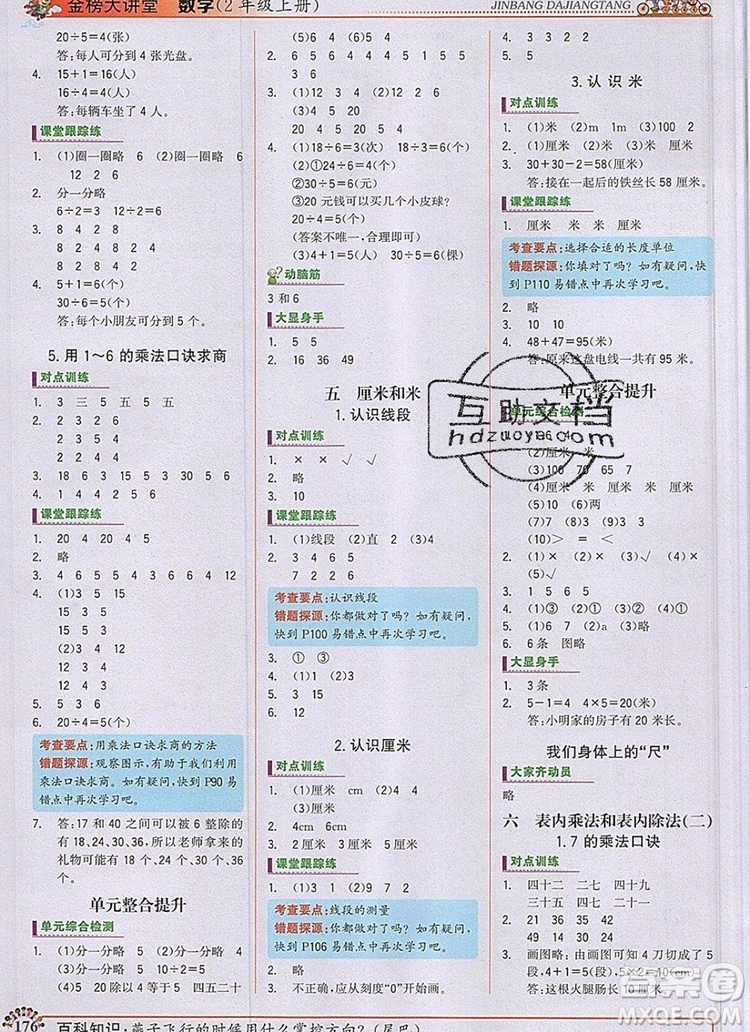 金榜大讲堂 数学(2年级上册)
JINBANG DAJIANGTANG
20÷5=4(张)
答:每张坐4张光盘。
4. 15+1=16(人)
16÷4=4(人)
答:每辆车坐了4人。
课堂跟踪练
1. (1)圈一圈略 6 (2)圈一圈略 6
12 2 6
2. 分一分略
6÷2=3 12÷6=2
3. 8 4 2 8
4 8 2 8
4. 10÷2=5(个)
30÷6=5(个)
答:每个小朋友可分到5个。
5.用1～6的乘法口诀求商
对点训练
1. 3 三 5 五 5 五 五
2. 2 3 4 6
2 3 4 6
2 3 4 6
3. 18 6 3 15 5 3 30 6 5
4. 1 4 2 4 5 6
课堂跟踪练
1. 20 4 20 4 5
2. 略
3. 4 6 5 4 3 4 6 5 6 3
4. (1)3 5 15
15 3 5
15 5 3
(2)3 4 12
12 3 4
12 4 3
5. > < < = > =
6. 20÷4=5(个)
考查要点:用乘法口诀求商的方法
错题探源:观察图示,有助于我们利用
乘法口诀求商。如有疑问,快到 P90 易
错点中再次学习吧。
7. 答:17 和 40 之间可以被 6 整除的
有 18、24、30、36,所以老师拿来的
礼物可能有 18、24、30、36 个。
单元整合提升
单元综合检测
1. (1)分一分略 5 (2)分一分略 4
(3)10÷2=5 (4)6 4 四六二十四
(5)5 20 20÷5=4 四 四五二十
176
百科知识:燕子飞行的时候用什么掌控方向?(尾巴)
(5)6 4 6 4
2. 5 4 4 5 1 5
5 3 1 6
3. (1)3 12 12 3 6 12 6
(2)5 30 30 5 6
4. (1)18÷6=3(次) 18÷3=6(个)
(2)①24÷6=4(个)
②30÷5=6(个)
③20元钱可以买几个小皮球?
20÷4=5(个)
(答案不唯一,合理即可)
(3)24÷6=4(個) 24÷4=6(棵)
动脑筋
3 和 6
大显身手
1. 5 5 4 2
2. 16 36 49
五 厘米和米
1.认识线段
对点训练
1. × × √ √
2. 略
3. 10
课堂跟踪练
1. (1)线段 (2)直 (3)2 (4)3
2. 3 4 4 5 6
7 2 2 6
考查要点:认识线段
错题探源:你都做对了吗?如有疑问,
快到 P100 易错点中再次学习吧。
3. ① ③
4. √ √ √
5. 3 10 12
2.认识厘米
对点训练
1. (1)厘米 cm (2)4 4
(3)厘米
2. 4cm 6cm
3. 2厘米 3厘米 5厘米
课堂跟踪练
1. (1)3 (2)2 9 7 (3)厘米
考查要点:线段的测量
错题探源:你都做对了吗?如有疑问,
快到 P106 易错点中再次学习吧。
2. 略
3. 不正确,应从刻度“0”开始画。
4. 2 3 3 2 2 1
5. 5
3.认识米
对点训练
1. (1)米 (2)m 1m (3)100 2
2. (1)厘米 (2)米 (3)厘米 (4)米
3. 30+30-2=58(厘米)
答:接在一起后的铁丝长58厘米。
课堂跟踪练
1. 厘米 米 米 厘米
考查要点:选择合适的长度单位
错题探源:你填对了吗?如有疑问,快
到 P110 易错点中再次学习吧。
2. 略
3. 10 10
4. 48+47=95(米)
答:原来这盘电线一共有95米。
单元整合提升
单元综合检测
(3)100 70 65 7
(4)厘米 米 厘米 米 厘米
(5)10 (6)两
(10)> = <
2. (1)× (2)× (3)√ (4)×
3. 1 5 6 5
4. (1)③ (2)① (3)② (4)①
5. (1)6 7 (2)a (3)略
6. 6条 图略
大显身手
1. 3条
2. 5-1=4 4×5=20(米)
答:小明家的房子有20米高。
我们身体上的“尺”
大家齐动员
略
六 表内乘法和表内除法(二)
1.7的乘法口诀
对点训练
1. 四十二 二七 四十九
三十五 五七 二十一
2. 21 35 49 42
14 28 7 24
3. 画图略:由画图可知4刀切成了5
段,每段长2cm,5×2=10(cm)
答:这根火腿肠长10厘米。
互助文档
hdzuoye.com
作业答案圈
MXQE.COM